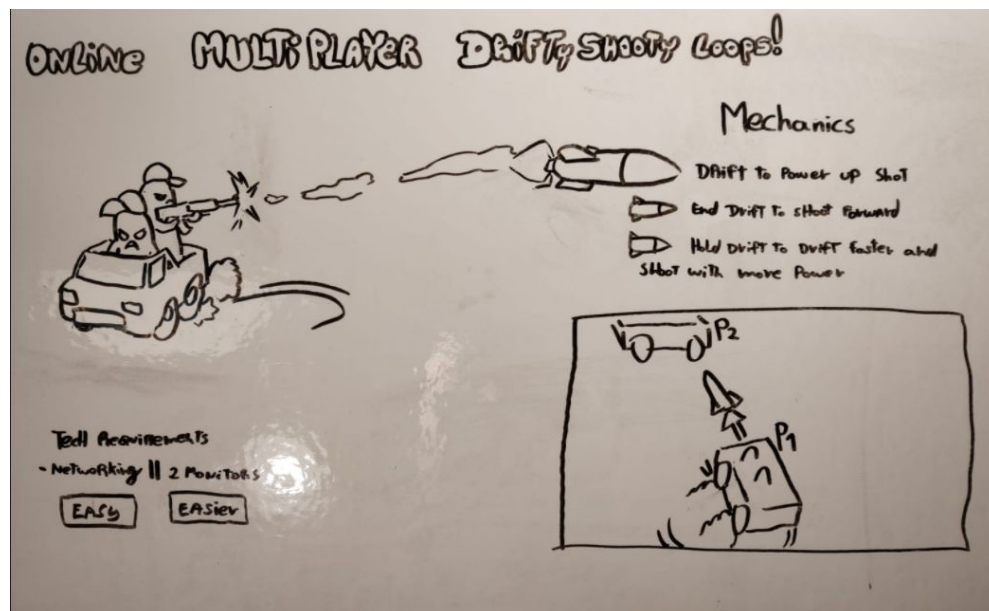 ONLiNE MULTiPLAYER DRiFTy SHOOTY LOOPS!
Mechanics
DRift to Power up Shot
End Drift to shoot forward
Hold Drift to Drift faster and
Shoot with more Power
P2
P1
Tech Requirements
- Networking || 2 Monitors
EASy
EASier